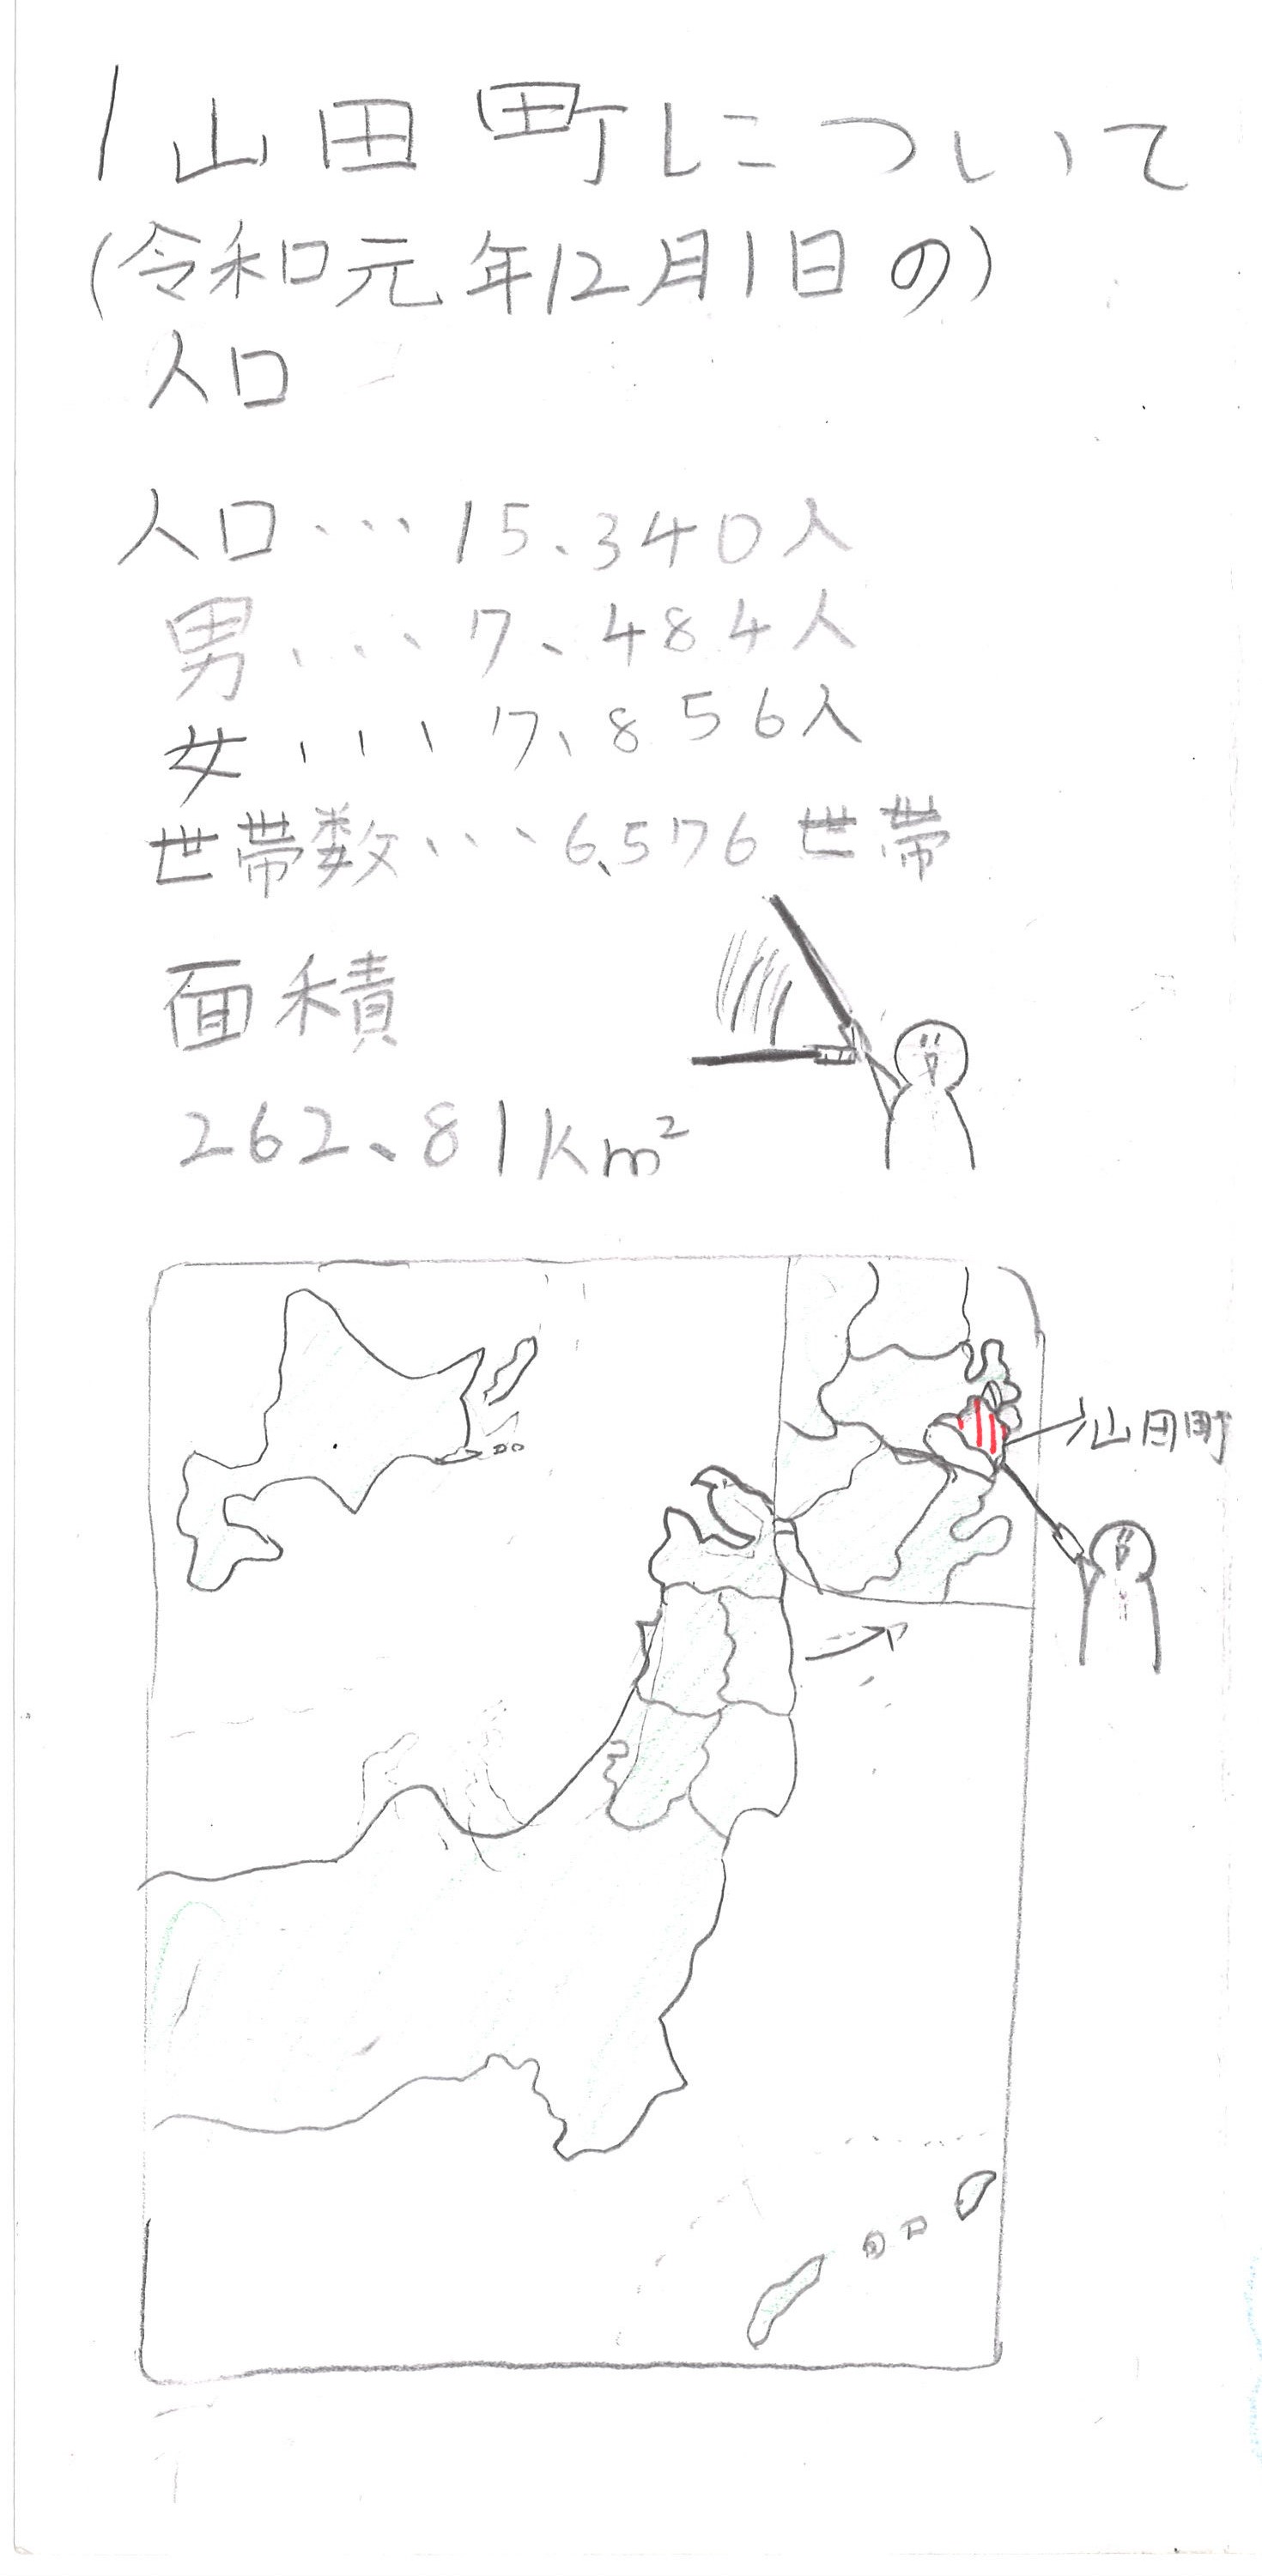 1 山田町について
(令和元年12月1日の)
人口
人口・・・15、340人
男・・・7、484人
女・・・7、856人
世帯数・・・6、576世帯
面積
262、81km²
山田町